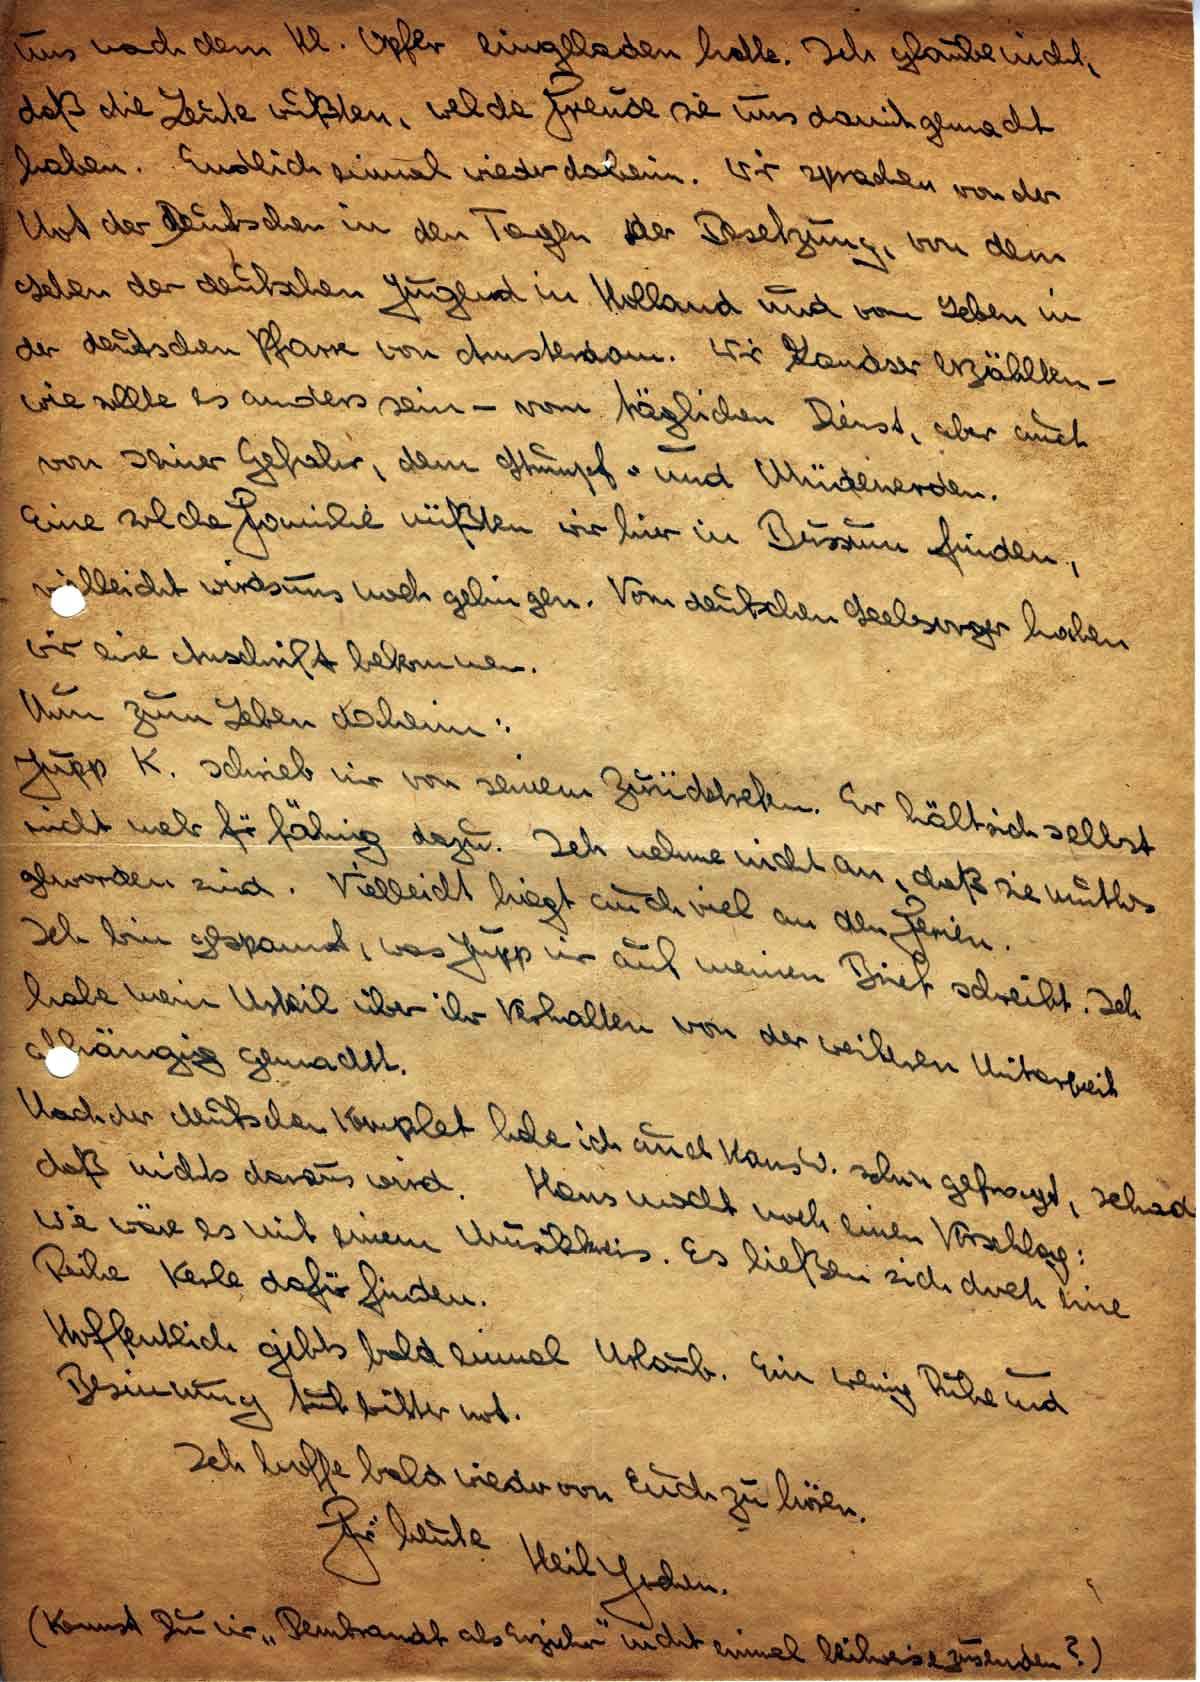 uns nach dem Hl. Opfer eingeladen hatte. Ich glaube nicht,
daß die Leute wüßten, welche Freude sie uns damit gemacht
haben. Endlich einmal wieder daheim. Wir sprachen von der
Not der Deutschen in den Tagen der Besetzung, von dem
Leben der deutschen Jugend in Holland und vom Leben in
der deutschen Pfarre von Amsterdam. Wir Landser erzählten –
wie sollte es anders sein – vom täglichen Dienst, aber auch
von seiner Gefahr, dem Stumpf- und Müdewerden.
Eine solche Familie müßten wir hier in Bussum finden,
vielleicht wirds uns noch gelingen. Vom deutschen Seelsorger haben
wir eine Anschrift bekommen.
Nun zum Leben daheim:
Jupp K. schrieb mir von seinem Zurücktreten. Er hält sich selbst
nicht mehr für fähig dazu. Ich nehme nicht an, daß sie mutlos
geworden sind. Vielleicht liegt auch viel an den Ferien.
Ich bin gespannt, was Jupp mir auf meinen Brief schreibt. Ich
habe mein Urteil über ihr Verhalten von der weiteren Mitarbeit
abhängig gemacht.
Nach der deutschen Komplet habe ich auch Hans W. schon gefragt, schad
daß nichts daraus wird. Hans macht noch einen Vorschlag:
Wie wäre es mit einem Musikkreis. Es ließen sich doch eine
Reihe Kerle dafür finden.
Hoffentlich gibts bald einmal Urlaub. Ein wenig Ruhe und
Besinnung tut bitter not.
Ich hoffe bald wieder von Euch zu hören.
Für heute Heil Jochen.
(Kannst Du mir „Rembrandt als Erzieher" nicht einmal leihweise zusenden?)